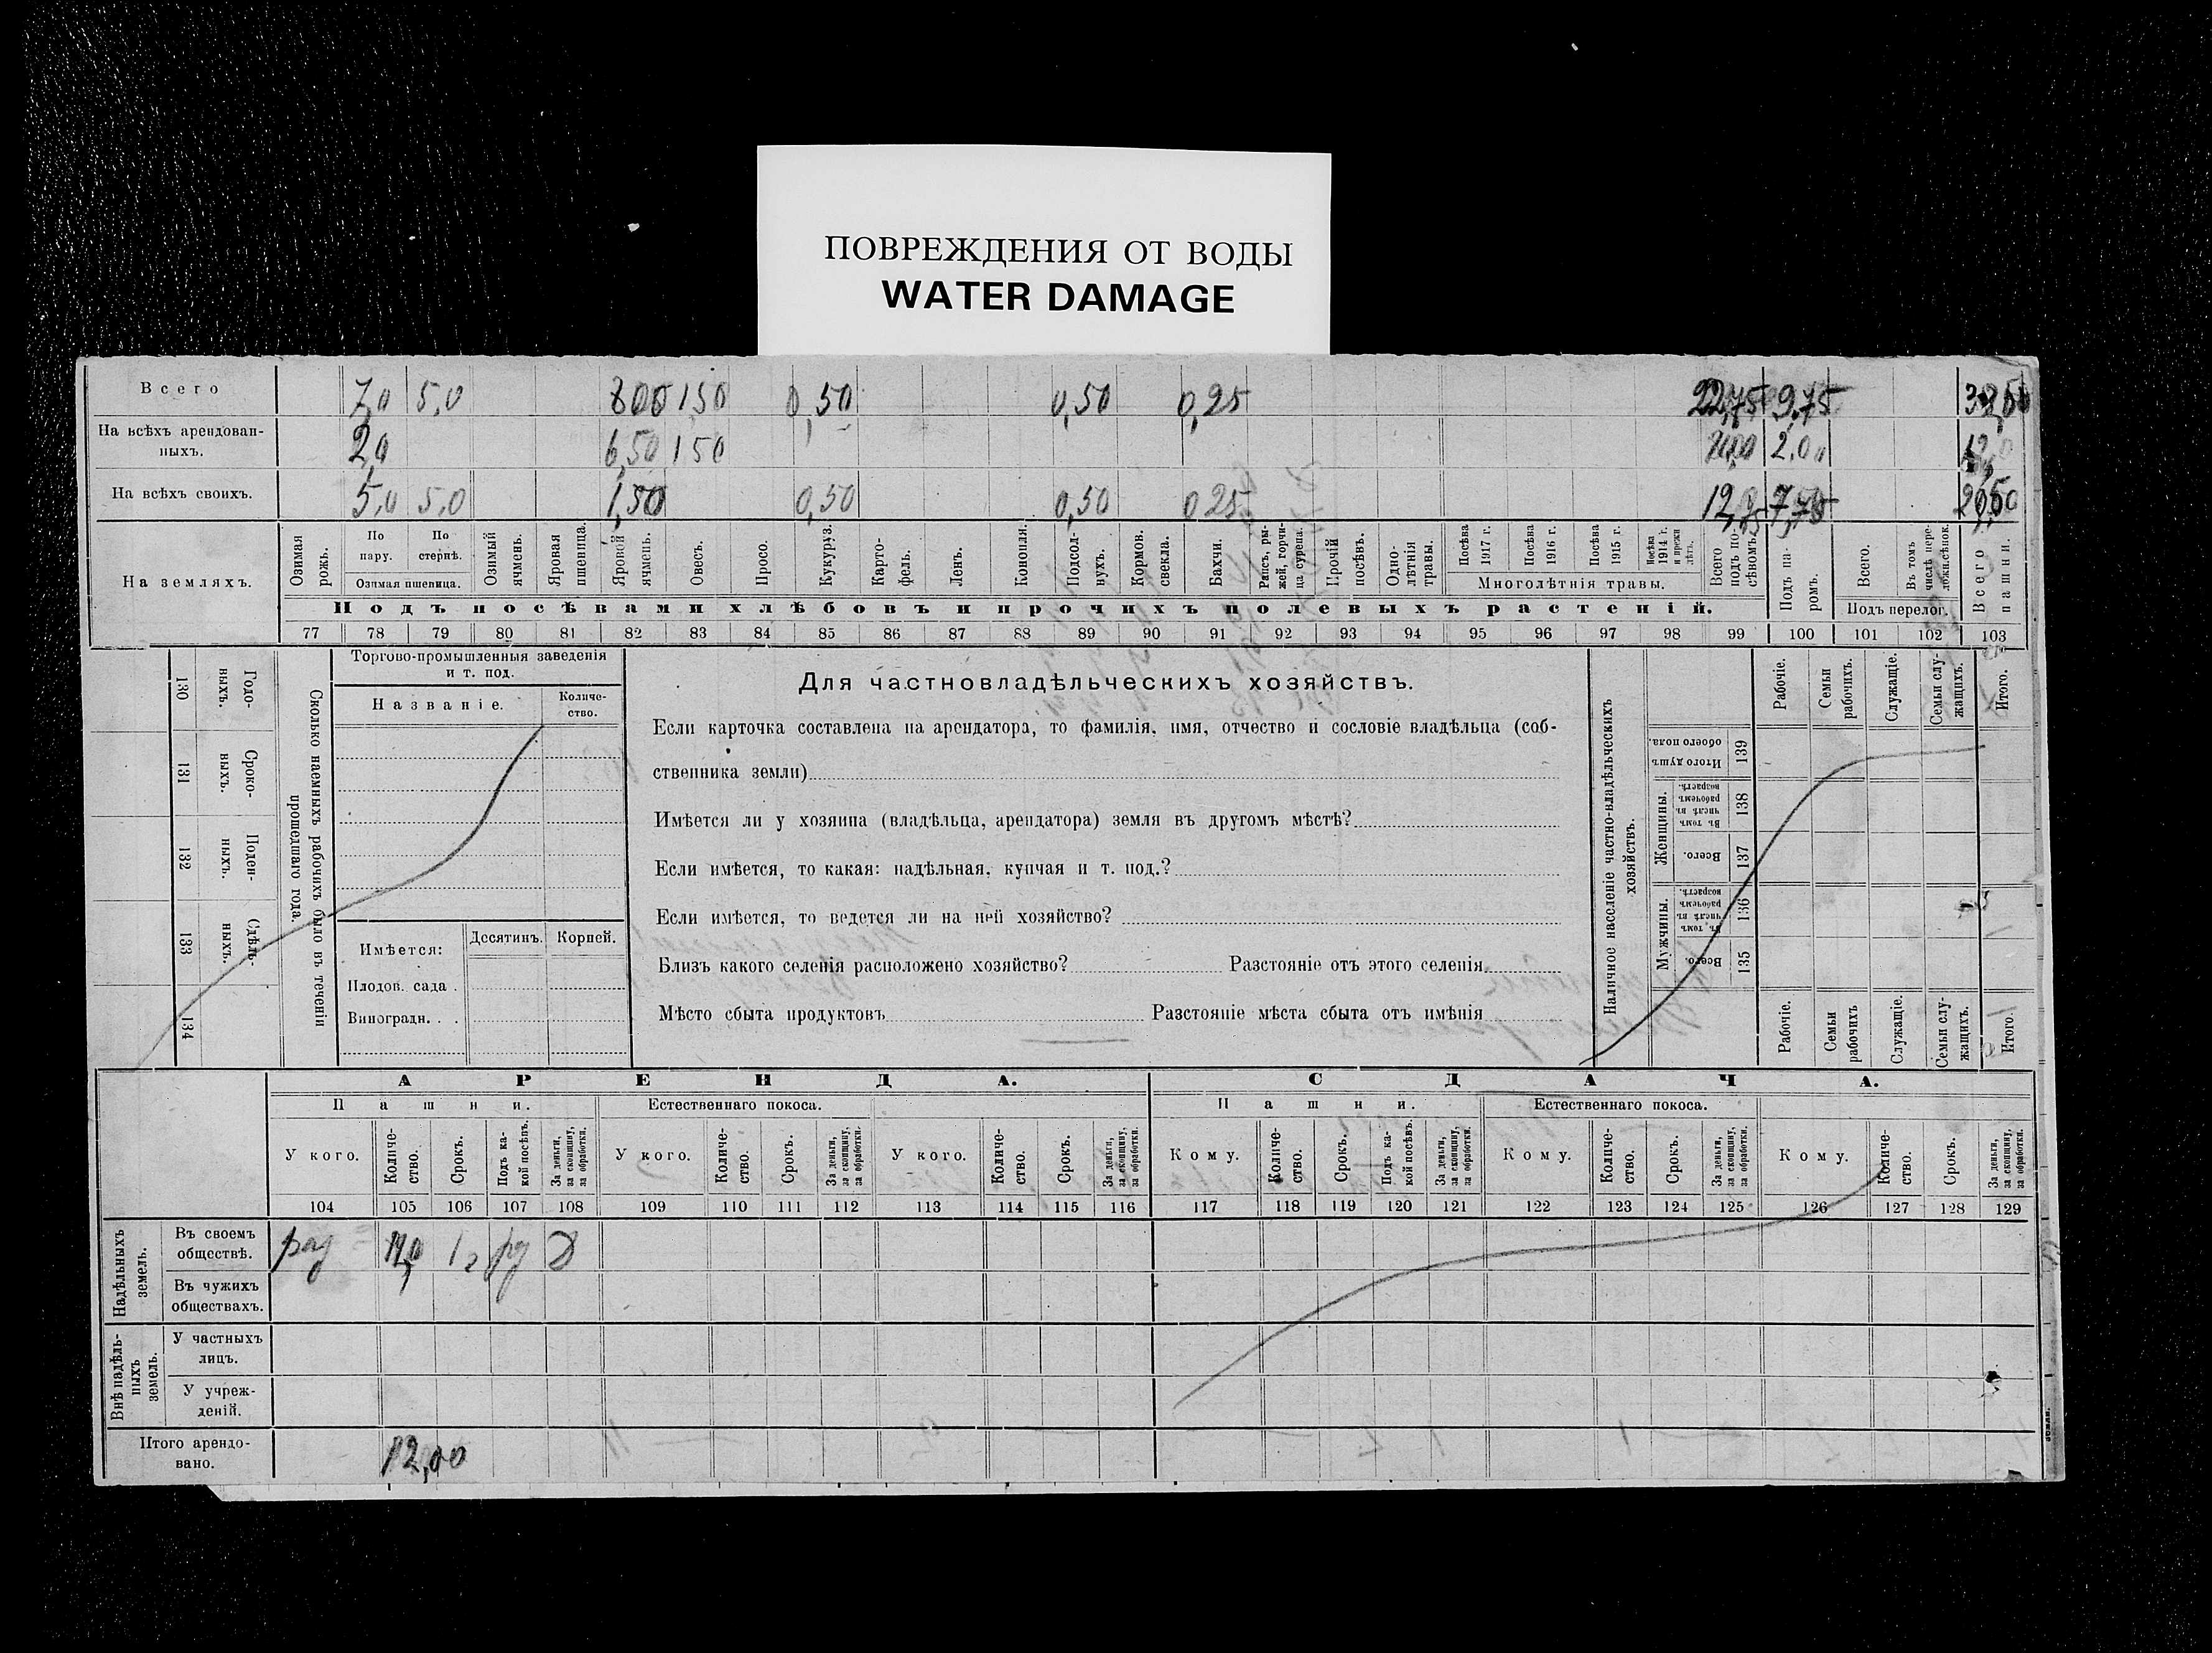 ПОВРЕЖДЕНИЯ ОТ ВОДЫ
WATER DAMAGE
Всего 7,0 5,0 8 00 1 50 0,50 0,50 0,25 22,75 9,75
На всѣхъ арендован-
ныхъ. 2,0 6,50 1 50 2,00
На всѣхъ своихъ. 5,0 5,0 1,50 0,50 0,50 0 25 7,75
На земляхъ.
Озимая рожь.
По пару.
По стернѣ.
Озимая пшеница.
Озимый ячмень.
Яровая пшеница.
Яровой ячмень.
Овесъ.
Просо.
Кукуруз.
Карто-
фель.
Ленъ.
Конопля.
Подсол-
нухъ.
Кормов. свекла.
Бахчи.
Рапсъ, ры-
жей, горчи-
ца сурепа.
Прочій посѣвъ.
Одно-
лѣтнія травы.
Посѣва 1917 г.
Посѣва 1916 г.
Посѣва 1915 г.
Посѣва 1914 г. и прежн лѣтъ.
Многолѣтнія травы.
Всего подъ по-
сѣвомъ.
Подъ па-
ромъ.
Всего.
Въ томъ числѣ пере-
ложн.сѣнок.
Подъ перелог.
Всего пашни.
Подъ посѣвами хлѣбовъ и прочихъ полевыхъ растеній.
77 78 79 80 81 82 83 84 85 86 87 88 89 90 91 92 93 94 95 96 97 98 99 100 101 102 103
Годо-
ныхъ.
130
Сроко-
ныхъ.
131
Поден-
ныхъ.
132
Сдѣль-
ныхъ.
133
134
Сколько наемныхъ рабочихъ было въ теченіи
прошедшаго года.
Торгово-промышленныя заведенія
и т. под.
Названіе.
Количе-
ство.
Имѣется: Десятинъ. Корней.
Плодов. сада .
Виноградн. . .
Для частновладѣльческихъ хозяйствъ.
Если карточка составлена на арендатора, то фамилія, имя, отчество и сословіе владѣльца (соб-
ственника земли)
Имѣется ли у хозяина (владѣльца, арендатора) земля въ другомъ мѣстѣ?
Если имѣется, то какая: надѣльная, купчая и т. под.?
Если имѣется, то ведется ли на ней хозяйство?
Близъ какого селенія расположено хозяйство? Разстояніе отъ этого селенія
Мѣсто сбыта продуктовъ Разстояніе мѣста сбыта отъ имѣнія
Наличное населеніе частно-владѣльческихъ
хозяйствъ.
Рабочіе.
Семьи рабочихъ.
Служащіе.
Семьи слу-
жащихъ.
Итого.
Итого душъ обоего пола.
139
Женщины.
Въ томъ числѣ въ рабочемъ возрастѣ.
138
Всего.
137
Мужчины.
Въ томъ числѣ въ рабочемъ возрастѣ.
136
Всего.
135
Рабочіе.
Семьи рабочихъ
Служащіе.
Семьи слу-
жащихъ.
Итого.
АРЕНДА. СДАЧА.
Пашни. Естественнаго покоса. Пашни. Естественнаго покоса.
У кого.
Количе-
ство.
Срокъ.
Подъ ка-
кой посѣвъ.
За деньги, за скопщину, за обработки.
У кого.
Количе-
ство.
Срокъ.
За деньги, за скопщину, за обработки.
У кого.
Количе-
ство.
Срокъ.
За деньги, за скопщину, за обработки.
Кому.
Количе-
ство.
Срокъ.
Подъ ка-
кой посѣвъ.
За деньги, за скопщину, за обработки.
Кому.
Количе-
ство.
Срокъ.
За деньги, за скопщину, за обработки.
Кому.
Количе-
ство.
Срокъ.
За деньги, за скопщину, за обработки.
104 105 106 107 108 109 110 111 112 113 114 115 116 117 118 119 120 121 122 123 124 125 126 127 128 129
Надѣльныхъ
земель.
Въ своемъ
обществѣ.
Въ чужихъ
обществахъ.
Внѣ надѣль-
ныхъ
земель.
У частныхъ
лицъ.
У учреж-
деній.
Итого арендо-
вано. 12,00